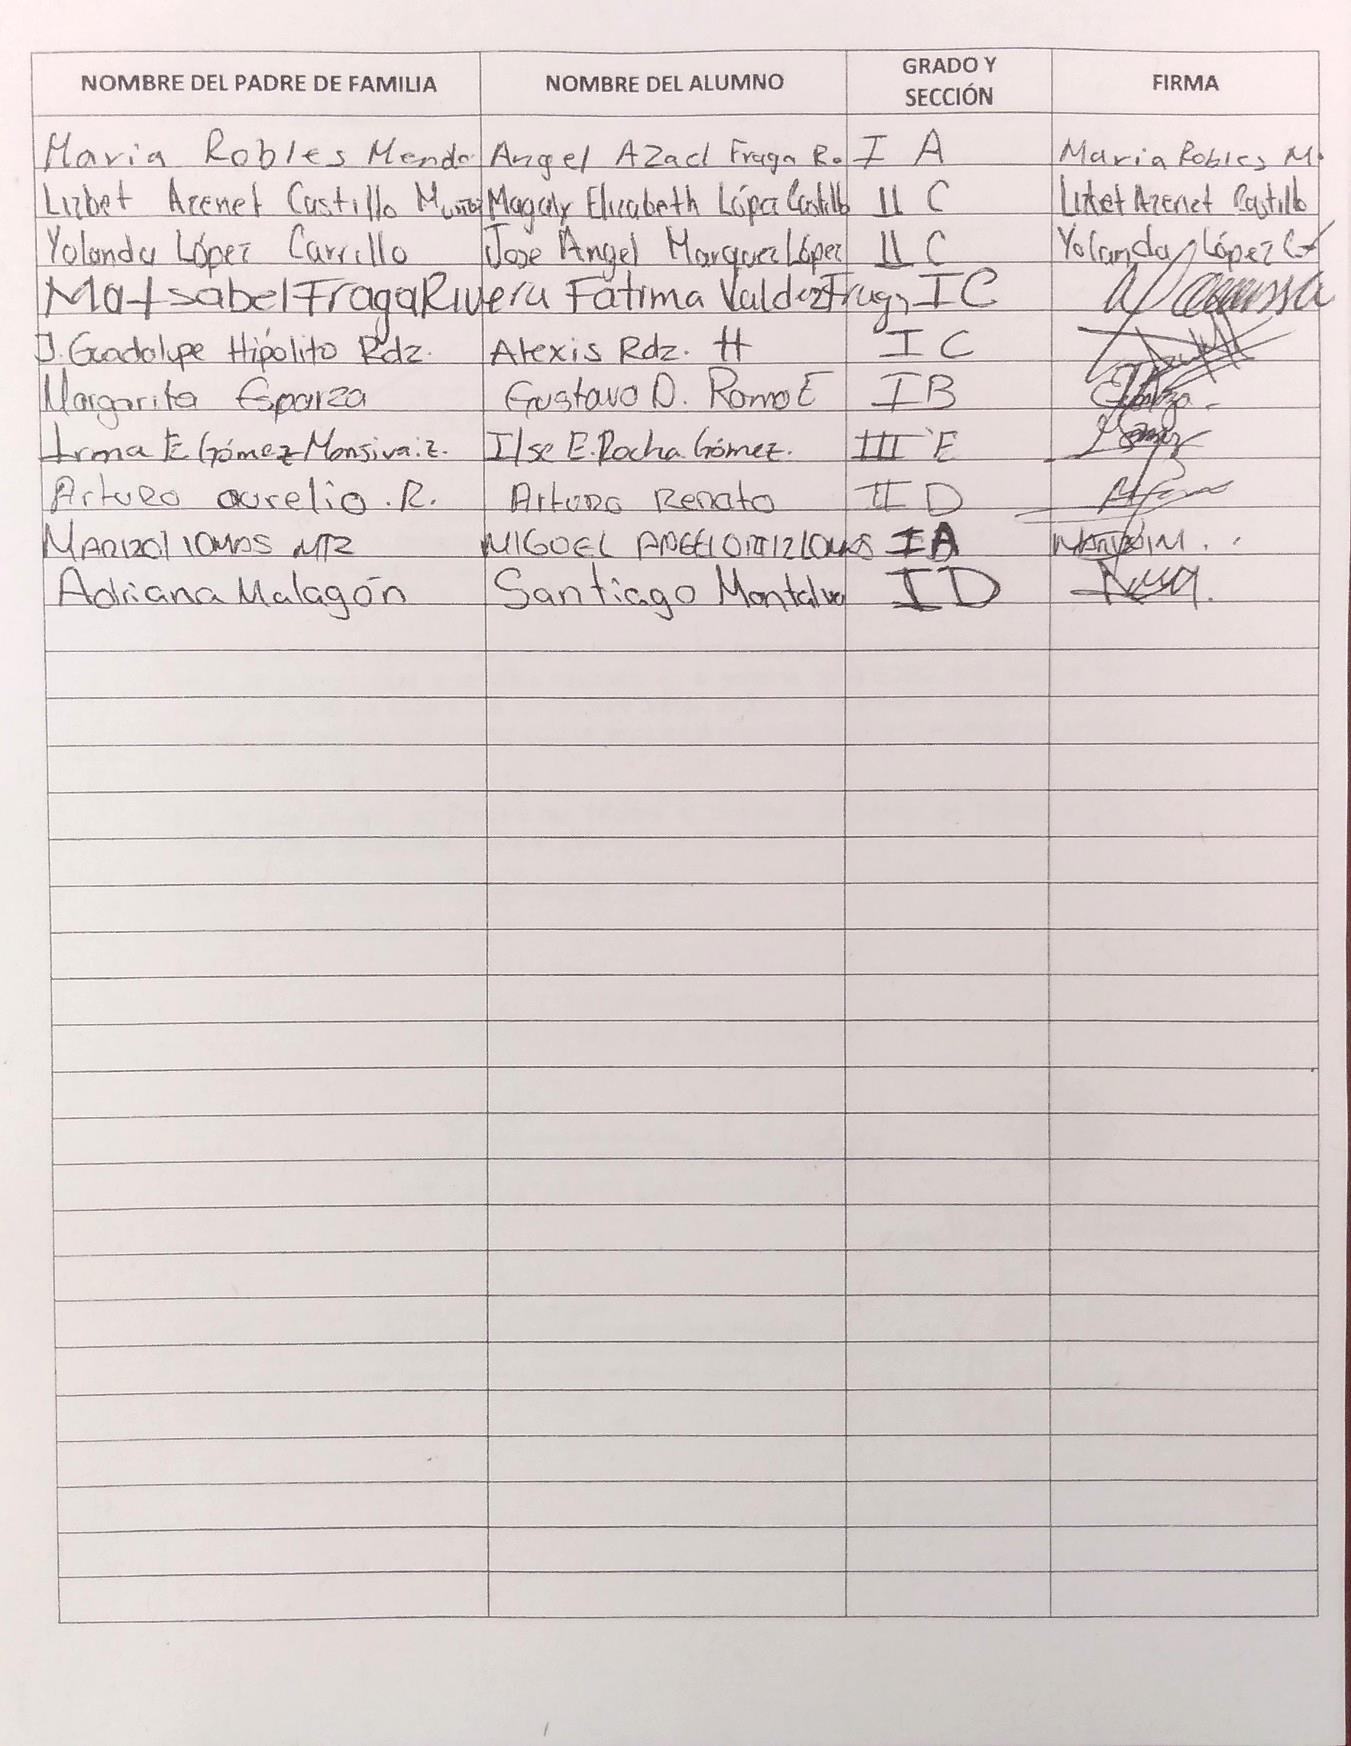 NOMBRE DEL PADRE DE FAMILIA NOMBRE DEL ALUMNO GRADO Y SECCIÓN FIRMA
Maria Robles Mendo Angel Azael Fraga R. I A Maria Robles M.
Lizbet Azenet Castillo Muñoz Magaly Elizabeth López Castillo II C Lizbet Azenet Castillo
Yolanda López Carrillo Jose Angel Marquez López II C Yolanda López C
Ma Isabel Fraga Rivera Fátima Valdez Fraga I C
J. Guadalupe Hipólito Rdz. Alexis Rdz. H I C
Margarita Esparza Gustavo D. Romo E I B
Irma E Gómez Monsivaiz. Ilse E. Rocha Gómez. III E
Arturo aurelio .R. Arturo Renato II D
MARIZOl lOMAS MTZ MIGUEL ANGEl ORTIZ lOMAS I A
Adriana Malagón Santiago Montalvo I D